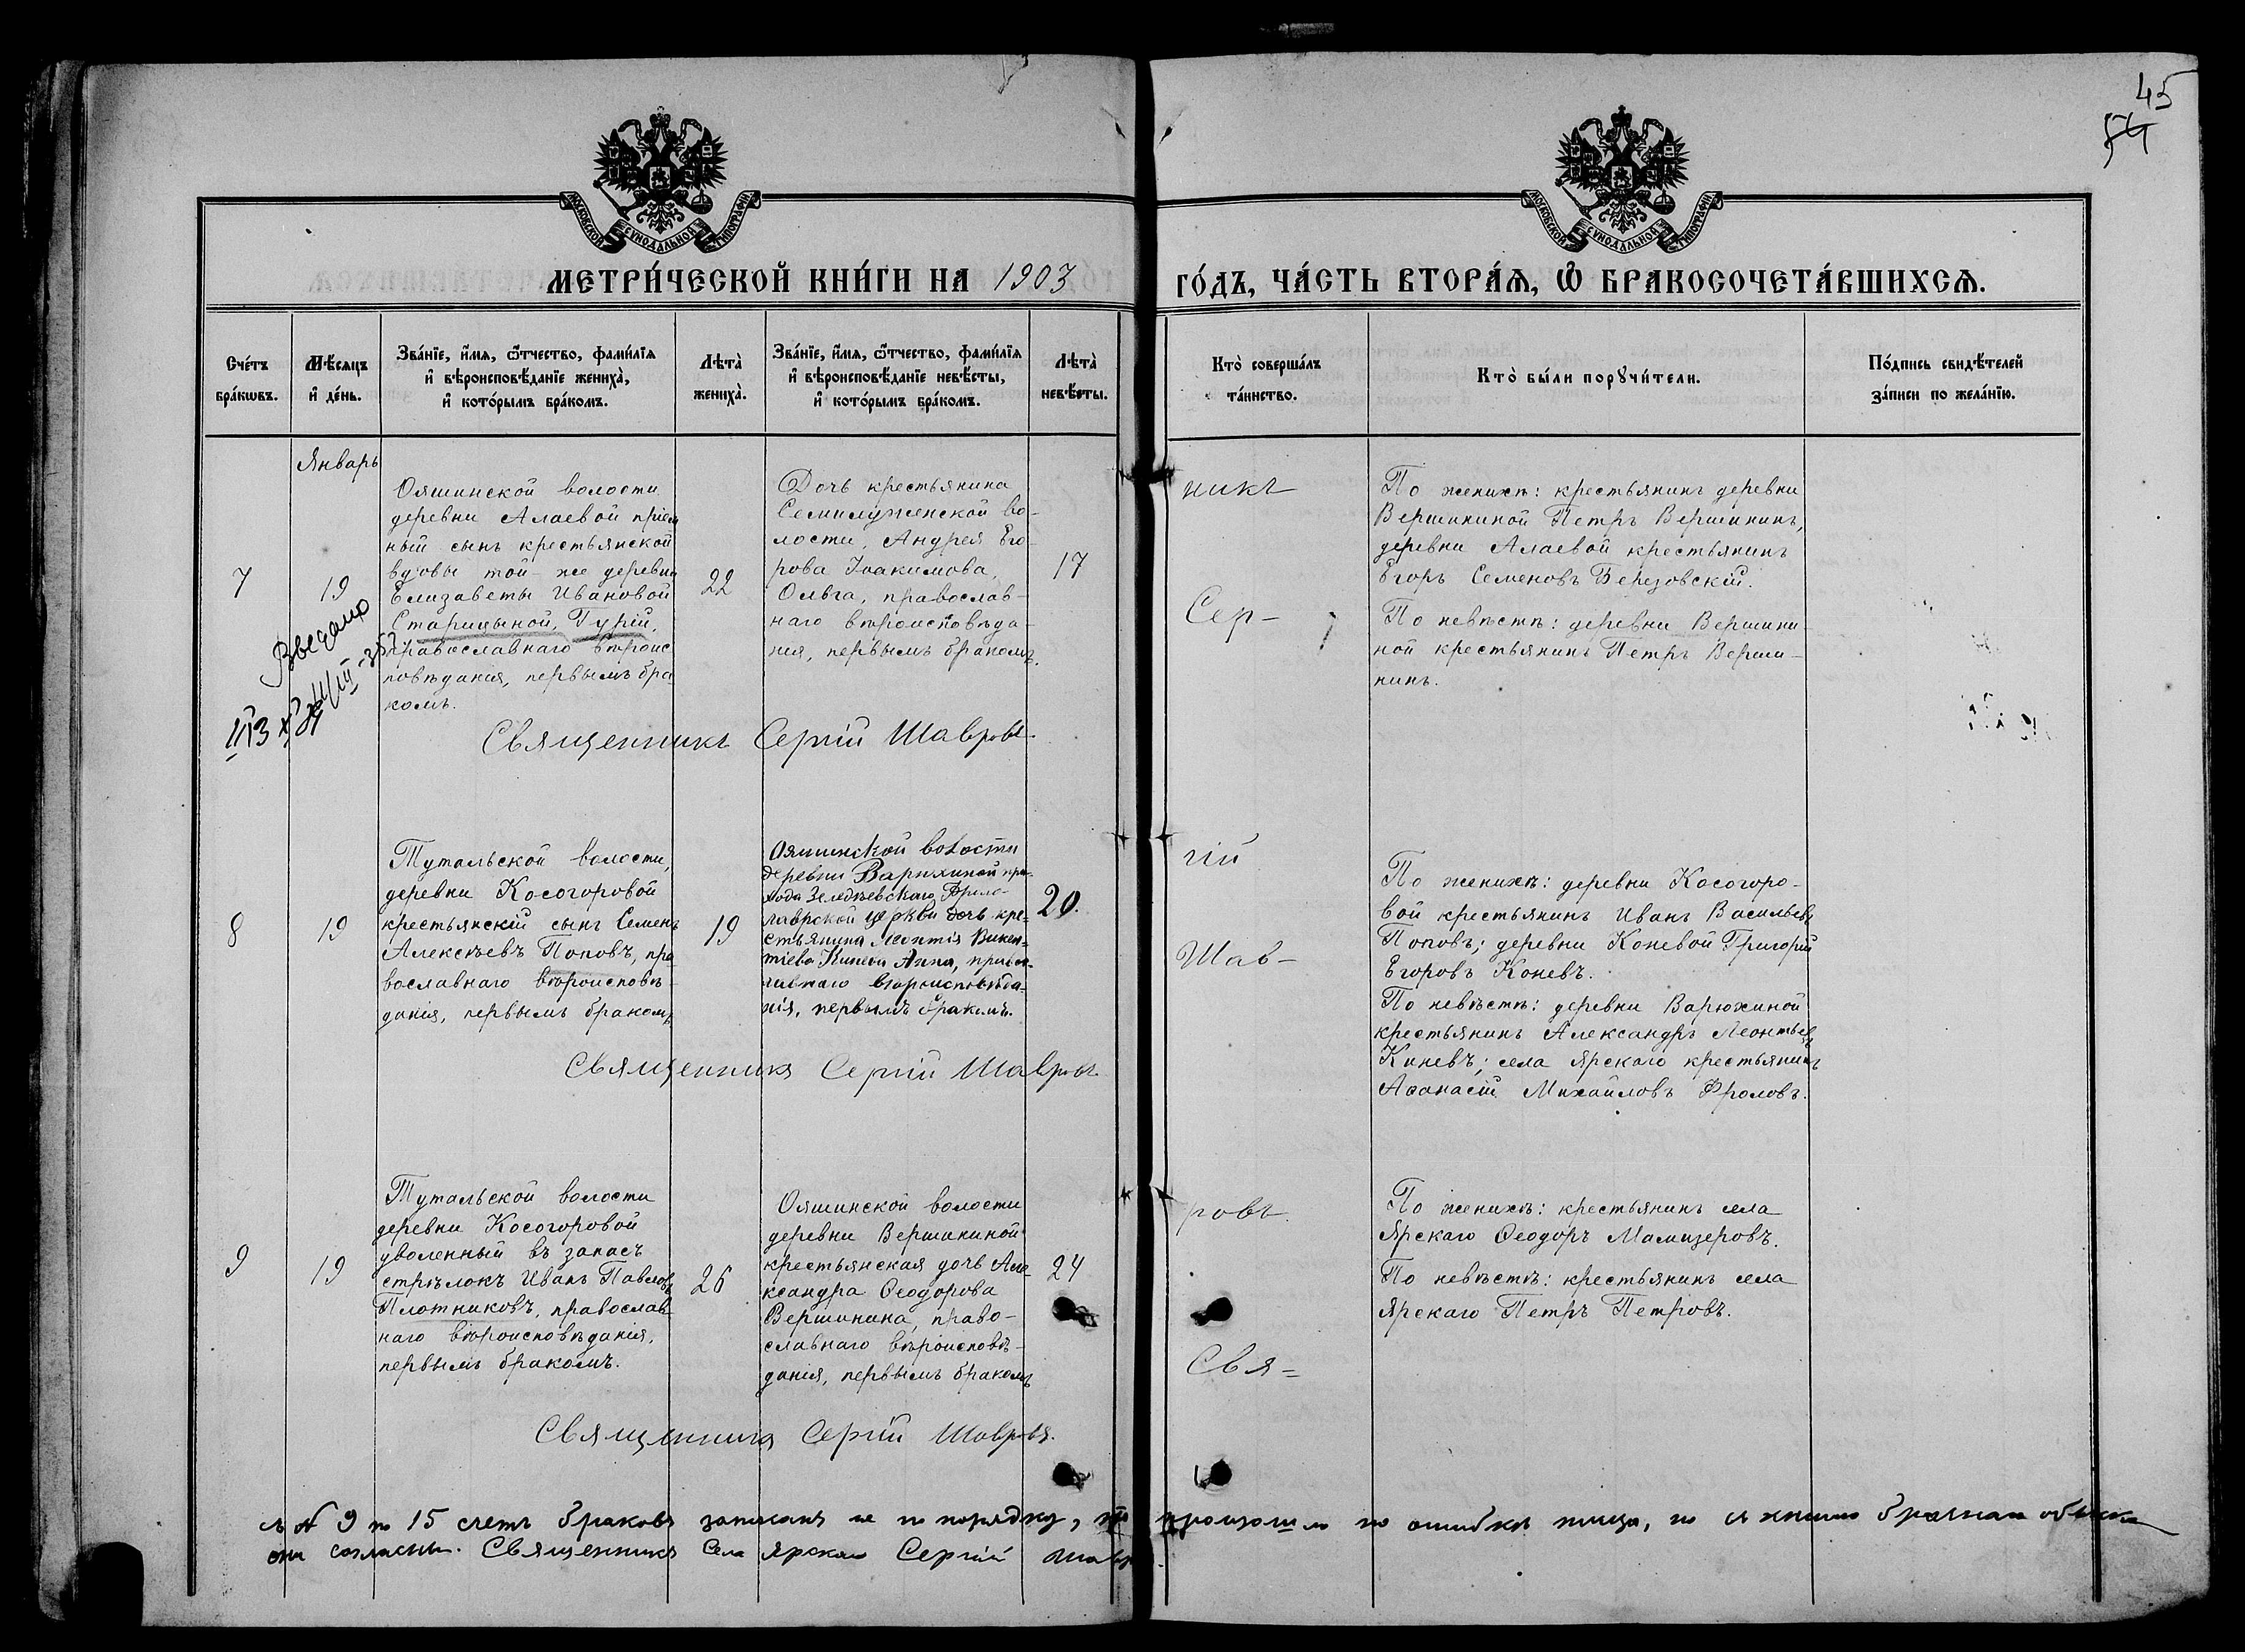 45
54
МОСКОВСКОЙ СѴНОДАЛЬНОЙ ТИПОГРАФІИ
МОСКОВСКОЙ СѴНОДАЛЬНОЙ ТИПОГРАФІИ
МЕТРИ́ЧЕСКОЙ КНИ́ГИ НА 1903 ГО́ДЪ, ЧА́СТЬ ВТОРА́Ѧ, Ѽ БРАКОСОЧЕТА́ВШИХСѦ.
Сче́тъ
бра́кѡвъ.
Мѣ́сяцъ
и҆ де́нь.
Зва́нїе, и҆́мѧ, ѻ҆́тчество, фами́лїѧ
и҆ вѣроисповѣ́данїе жениха̀,
и҆ кото́рымъ бра́комъ.
Лѣта̀
жениха̀.
Зва́нїе, и҆́мѧ, ѻ҆́тчество, фами́лїѧ
и҆ вѣроисповѣ́данїе невѣ́сты,
и҆ кото́рымъ бра́комъ.
Лѣта̀
невѣ́сты.
Кто̀ соверша́лъ
та́инство.
Кто̀ бы́ли порꙋчи́тели.
По́дпись свидѣ́телей
за́писи по жела́нїю.
Январь
7
19
Ояшинской волости
деревни Алаевой прием
ный сынъ крестьянской
вдовы той-же деревни
Елизаветы Ивановой
Старицыной, Гурій,
православнаго вѣроис
повѣданія, первымъ бра
комъ.
22
Дочь крестьянина
Семилуженской во-
лости, Андрея Его-
рова Іоакимова,
Ольга, православ-
наго вѣроисповѣда-
нія, первымъ бракомъ.
17
Введено
Священникъ Сергій Шавровъ.
никъ
Сер-
По женихѣ: крестьянинъ деревни
Вершининой Петръ Вершининъ,
деревни Алаевой крестьянинъ
Егоръ Семеновъ Березовскій.
По невѣстѣ: деревни Вершини-
ной крестьянинъ Петръ Верши-
нинъ.
8
19
Тутальской волости,
деревни Косогоровой
крестьянскій сынъ Семенъ
Алексѣевъ Поповъ, пра
вославнаго вѣроисповѣ-
данія, первымъ бракомъ
19
Ояшинской волости
деревни Варюхиной при-
хода Зеледѣевскаго Фроло-
лаврской церкви дочь кре=
стьянина Леонтія Викен=
тіева Кинева Анна, право-
славнаго вѣроисповѣда-
нія, первымъ бракомъ.
20.
Священникъ Сергій Шавровъ
гій
Шав-
По женихѣ: деревни Косогоро-
вой крестьянинъ Иванъ Васильевъ
Поповъ; деревни Коневой Григорій
Егоровъ Коневъ.
По невѣстѣ: деревни Варюхиной
крестьянинъ Александръ Леонтьевъ
Киневъ; села Ярскаго крестьянинъ
Аѳанасій Михайловъ Фроловъ.
9
19
Тутальской волости
деревни Косогоровой
уволенный въ запасъ
стрѣлокъ Иванъ Павловъ
Плотниковъ, православ-
наго вѣроисповѣданія,
первымъ бракомъ.
26
Ояшинской волости
деревни Вершининой
крестьянская дочь Але-
ксандра Ѳеодорова
Вершинина, право-
славнаго вѣроисповѣ-
данія, первымъ бракомъ
24
Священникъ Сергій Шавровъ.
ровъ.
Свя=
По женихѣ: крестьянинъ села
Ярскаго Ѳеодоръ Мамизеровъ.
По невѣстѣ: крестьянинъ села
Ярскаго Петръ Петровъ.
съ № 9 по 15 счетъ браковъ записанъ не по порядку, что произошло по ошибкѣ писца, но съ книгою брачныхъ обысковъ
они согласны. Священникъ Села Ярскаго Сергій Шавр